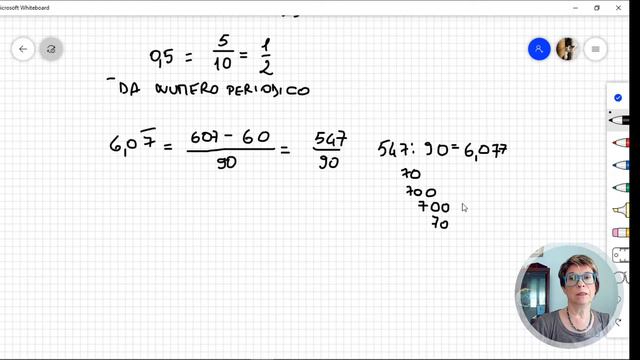 Microsoft Whiteboard
0,5 = 5/10 = 1/2
- DA NUMERO PERIODICO
6,07̅ = (607 - 60)/90 = 547/90
547 : 90 = 6,077
70
700
700
70